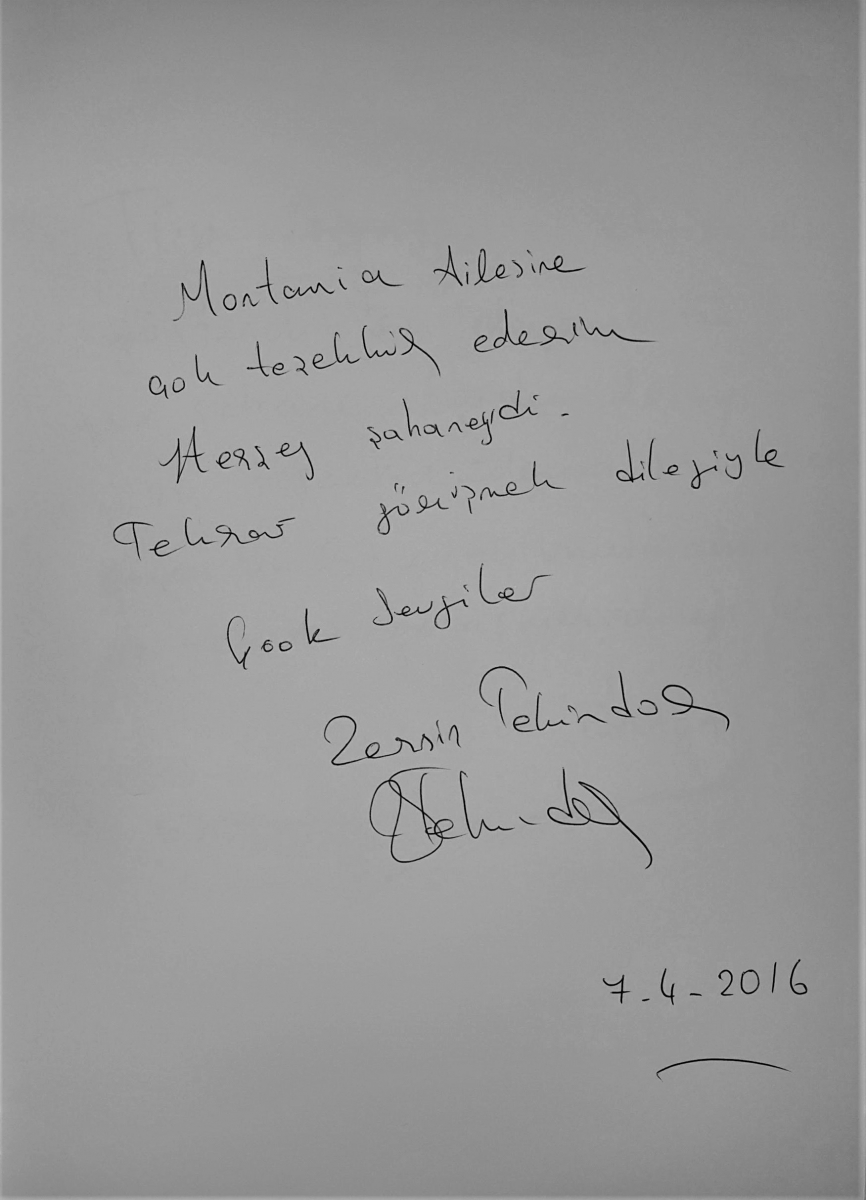 Montania Ailesine
çok teşekkür ederim
Herşey şahaneydi.
Tekrar görüşmek dileğiyle
Çook Sevgiler
Zerrin Tekindor
7.4-2016